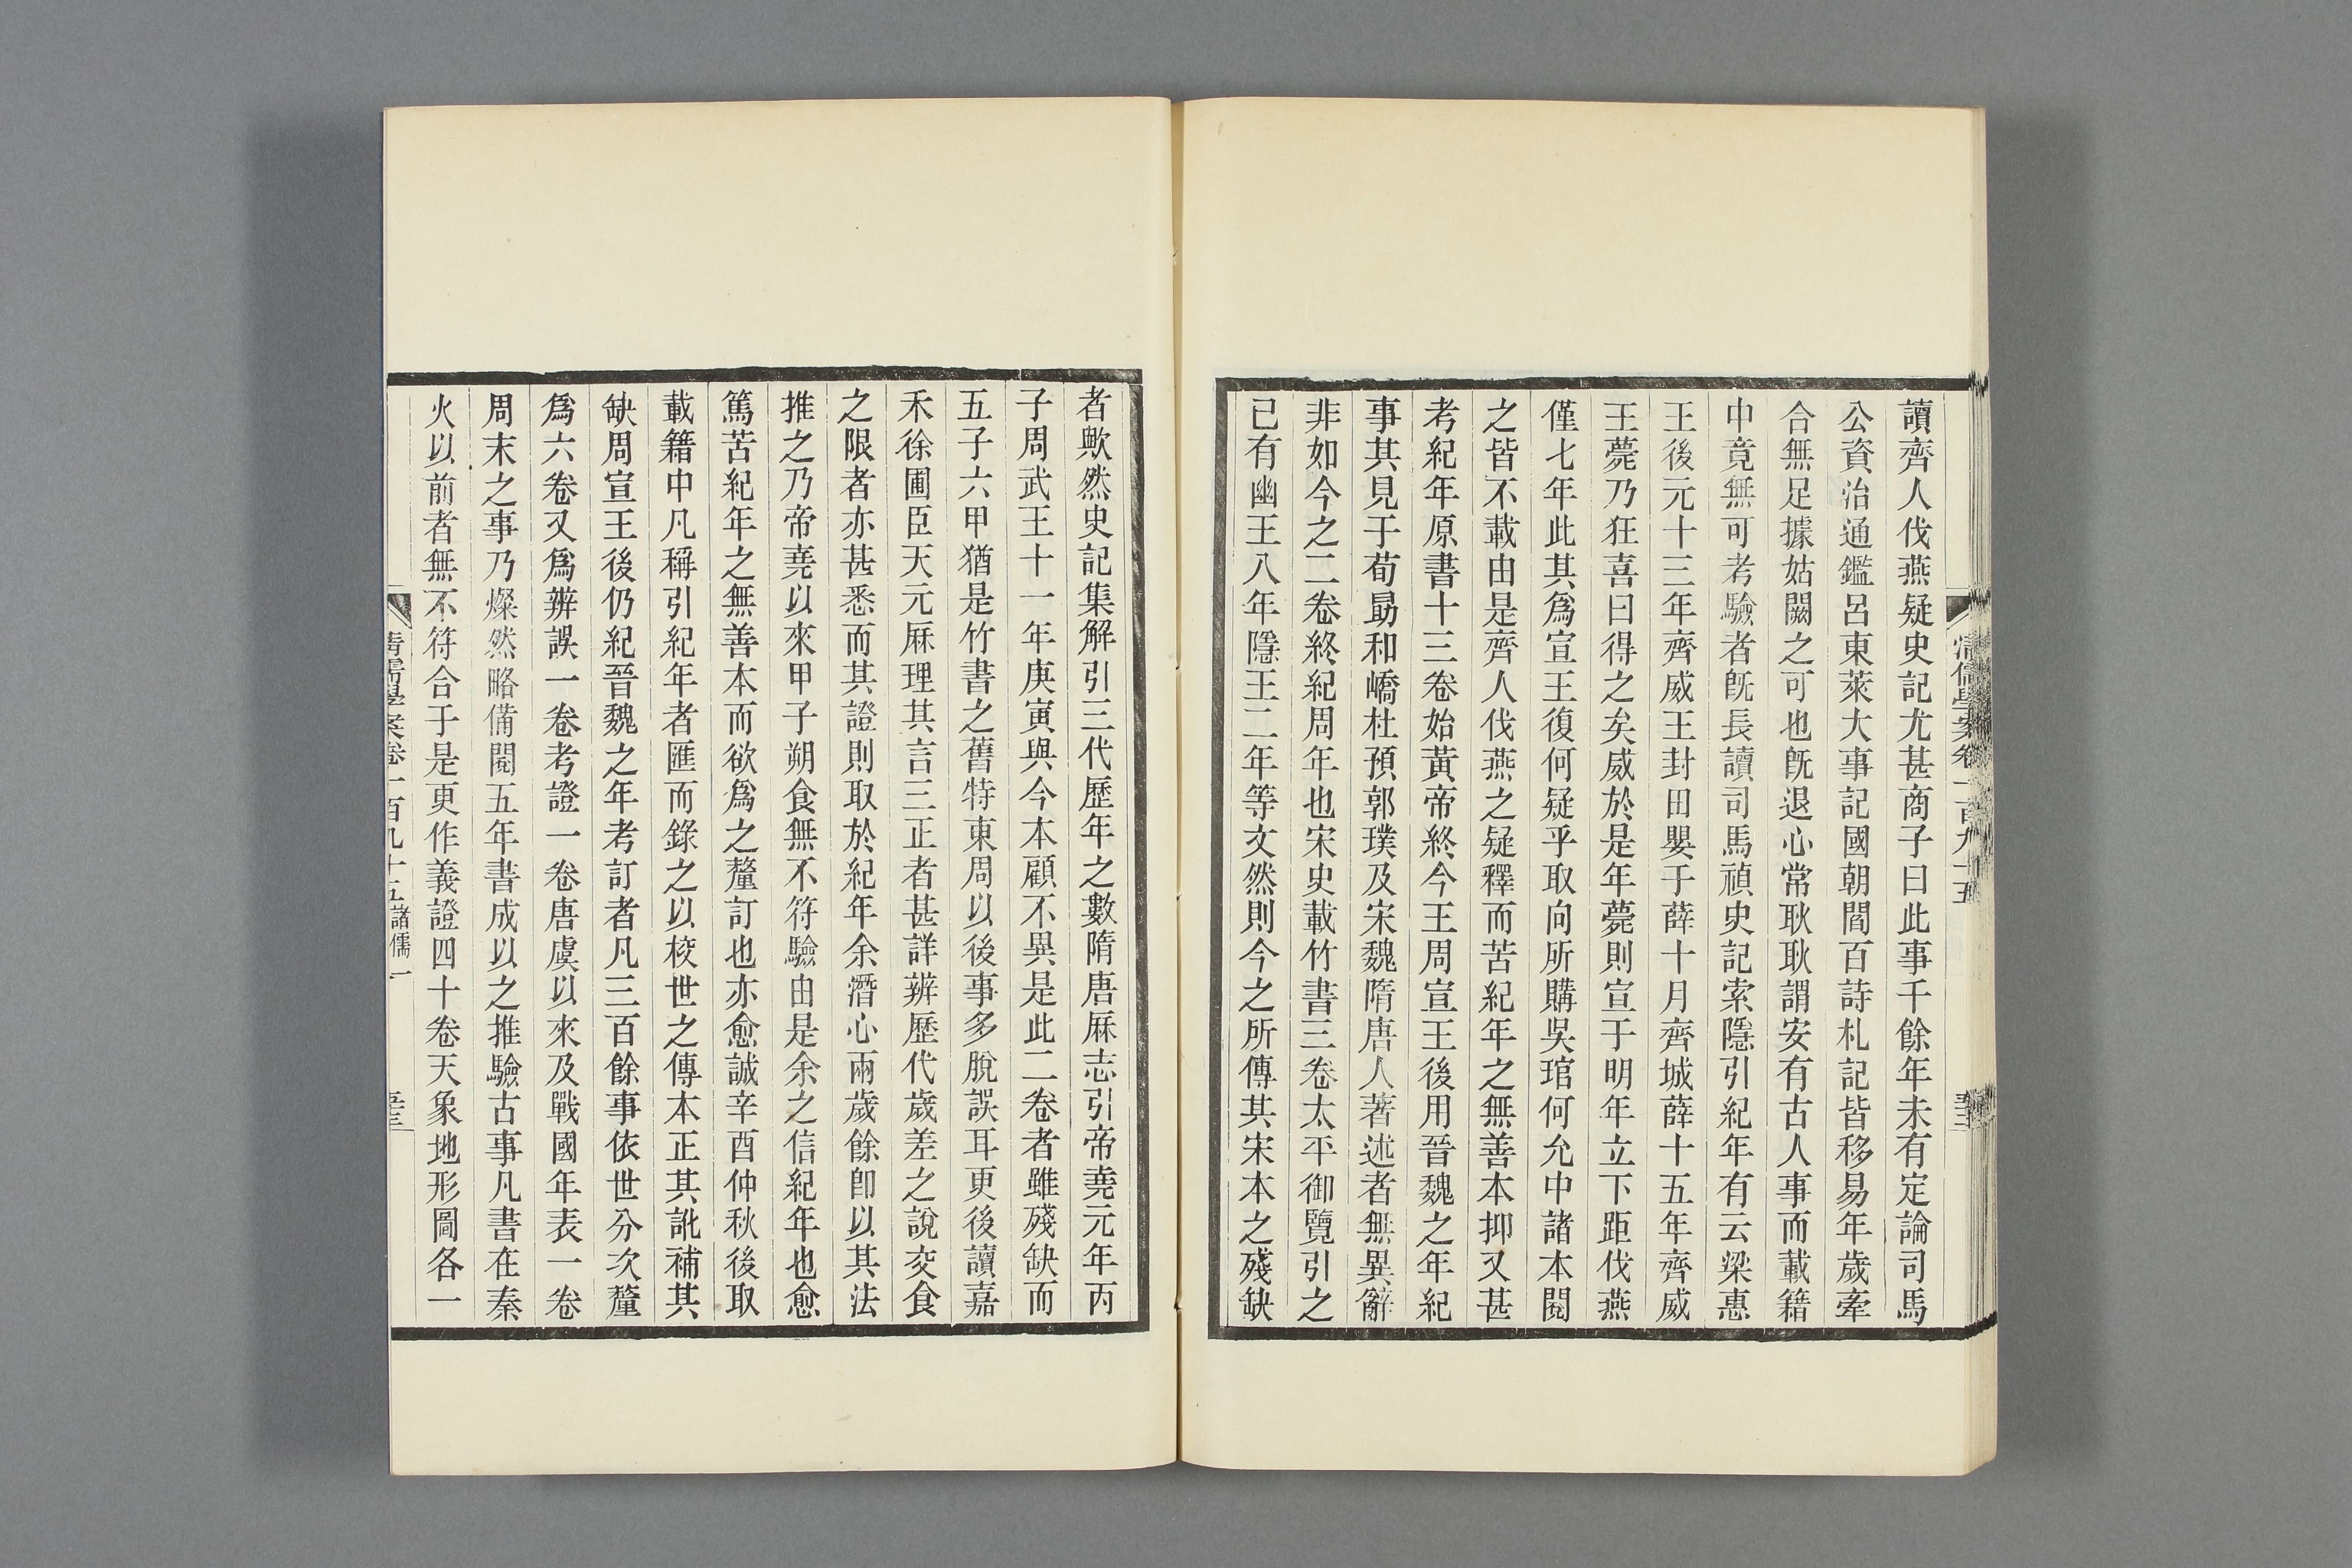 清儒學案卷一百九十五
讀齊人伐燕疑史記尤甚商子曰此事千餘年未有定論司馬
公資治通鑑呂東萊大事記國朝閻百詩札記皆移易年歲牽
合無足據姑闕之可也既退心常耿耿謂安有古人事而載籍
中竟無可考驗者既長讀司馬禎史記索隱引紀年有云梁惠
王後元十三年齊威王封田嬰于薛十月齊城薛十五年齊威
王薨乃狂喜曰得之矣威於是年薨則宣于明年立下距伐燕
僅七年此其爲宣王復何疑乎取向所購吳琯何允中諸本閱
之皆不載由是齊人伐燕之疑釋而苦紀年之無善本抑又甚
考紀年原書十三卷始黃帝終今王周宣王後用晉魏之年紀
事其見于荀勗和嶠杜預郭璞及宋魏隋唐人著述者無異辭
非如今之二卷終紀周年也宋史載竹書三卷太平御覽引之
已有幽王八年隱王二年等文然則今之所傳其宋本之殘缺
者歟然史記集解引三代歷年之數隋唐厤志引帝堯元年丙
子周武王十一年庚寅與今本顧不異是此二卷者雖殘缺而
五子六甲猶是竹書之舊特東周以後事多脫誤耳更後讀嘉
禾徐圃臣天元厤理其言三正者甚詳辨歷代歲差之說交食
之限者亦甚悉而其證則取於紀年余潛心兩歲餘卽以其法
推之乃帝堯以來甲子朔食無不符驗由是余之信紀年也愈
篤苦紀年之無善本而欲爲之釐訂也亦愈誠辛酉仲秋後取
載籍中凡稱引紀年者匯而錄之以校世之傳本正其訛補其
缺周宣王後仍紀晉魏之年考訂者凡三百餘事依世分次釐
爲六卷又爲辨誤一卷考證一卷唐虞以來及戰國年表一卷
周末之事乃燦然略備閱五年書成以之推驗古事凡書在秦
火以前者無不符合于是更作義證四十卷天象地形圖各一
清儒學案卷一百九十五 諸儒一